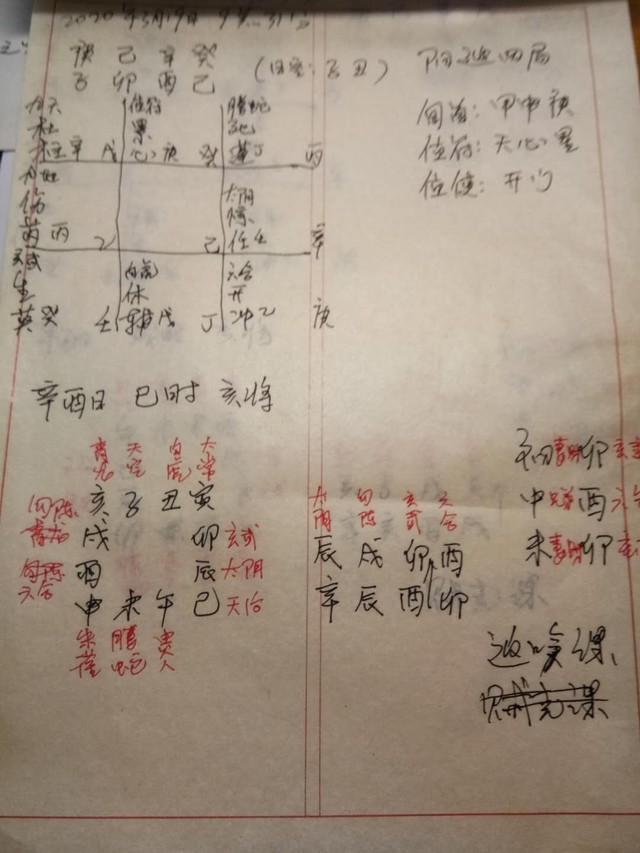 2020年3月19日 9点31分
庚 己 辛 癸
子 卯 酉 巳 (日空:子丑) 阳遁四局
旬首:甲申庚
值符:天心星
值使:开门
九天 值符 腾蛇
杜 景 死
柱辛 戊 心庚 癸 蓬丁 丙
九地 太阴
伤 惊
芮丙 乙 己 任壬 辛
玄武 白虎 六合
生 休 开
英癸 壬 辅戊 丁 冲乙 庚
辛酉日 巳时 亥将
青龙 天空 白虎 太常
勾陈 亥 子 丑 寅
青龙 戌 卯 玄武
勾陈 酉 辰 太阴
六合
申 未 午 巳 天后
朱雀 腾蛇 贵人
太阴 勾陈 玄武 六合
辰 戌 卯 酉
辛 辰 酉 卯
卯
中 酉 六合
末 卯
返吟课、